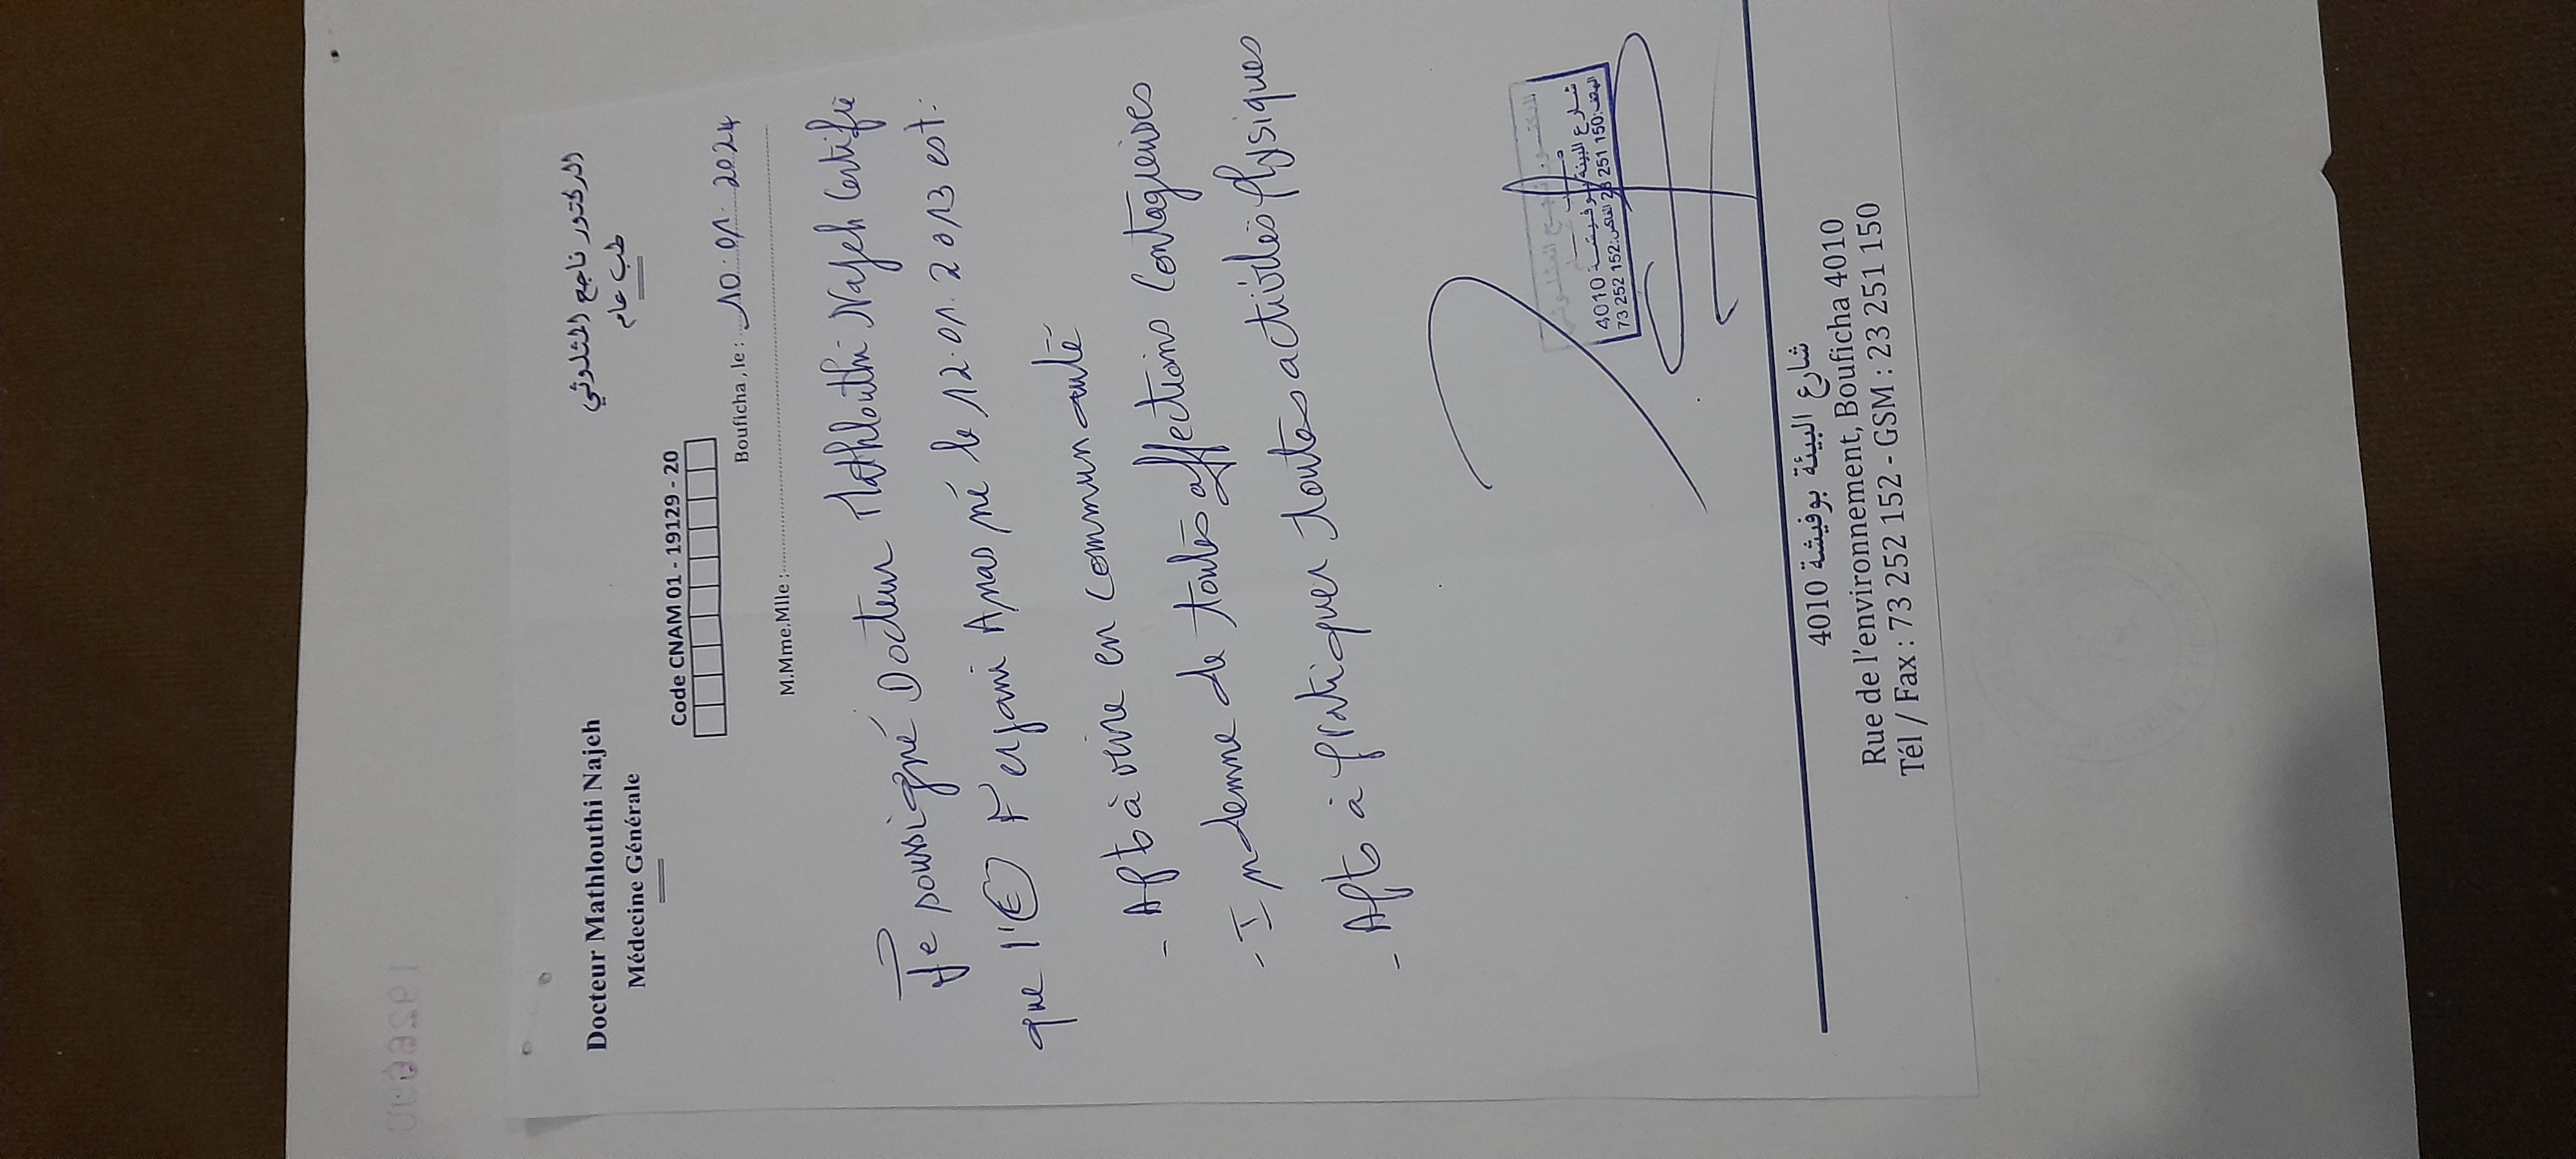 Docteur Mathlouthi Najeh
Médecine Générale
الدكتور ناجح المثلوثي
طب عام
Code CNAM 01 - 19129 - 20
Bouficha , le : 10.01.2024
M.Mme.Mlle :
Je soussigné Docteur Mathlouthi Najeh Certifie
que l'E Ferjani Anas né le 12.01.2013 est:
- Apte à vivre en Communauté
- Indemne de toutes affections Contagieuses
- Apte à pratiquer toutes activités physiques
شارع البيئة بوفيشة 4010
73 252 152 الفاكس: 23 251 150
شارع البيئة بوفيشة 4010
Rue de l'environnement, Bouficha 4010
Tél / Fax : 73 252 152 - GSM : 23 251 150